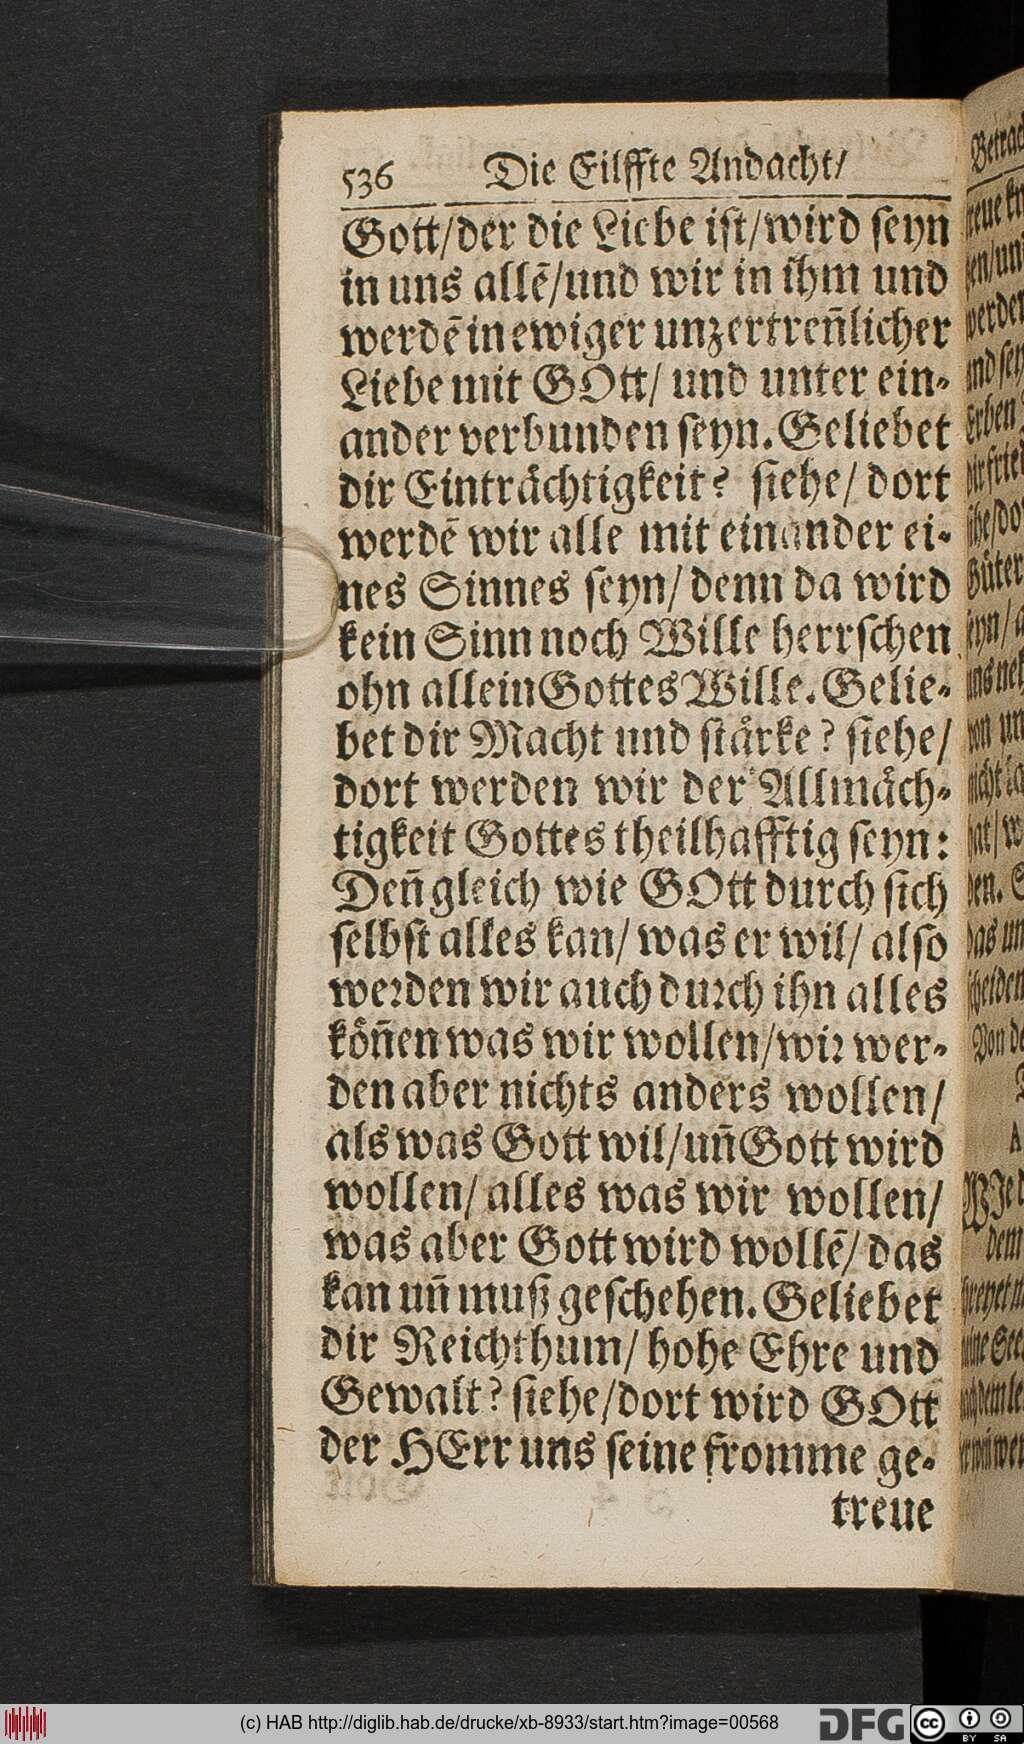 536 Die Eilffte Andacht/
Gott/der die Liebe ist/wird seyn
in uns allē/und wir in ihm und
werdē in ewiger unzertren̄licher
Liebe mit GOtt/ und unter ein-
ander verbunden seyn. Geliebet
dir Einträchtigkeit? siehe/ dort
werdē wir alle mit einander ei-
nes Sinnes seyn/ denn da wird
kein Sinn noch Wille herrschen
ohn allein Gottes Wille. Gelie-
bet dir Macht und stärke? siehe/
dort werden wir der Allmäch-
tigkeit Gottes theilhafftig seyn:
Den̄ gleich wie GOtt durch sich
selbst alles kan/ was er wil/ also
werden wir auch durch ihn alles
kön̄en was wir wollen/wir wer-
den aber nichts anders wollen/
als was Gott wil/un̄ Gott wird
wollen/ alles was wir wollen/
was aber Gott wird wollē/ das
kan un̄ muß geschehen. Geliebet
dir Reichthum/ hohe Ehre und
Gewalt? siehe/dort wird GOtt
der HErr uns seine fromme ge-
treue
(c) HAB http://diglib.hab.de/drucke/xb-8933/start.htm?image=00568
DFG
cc BY SA